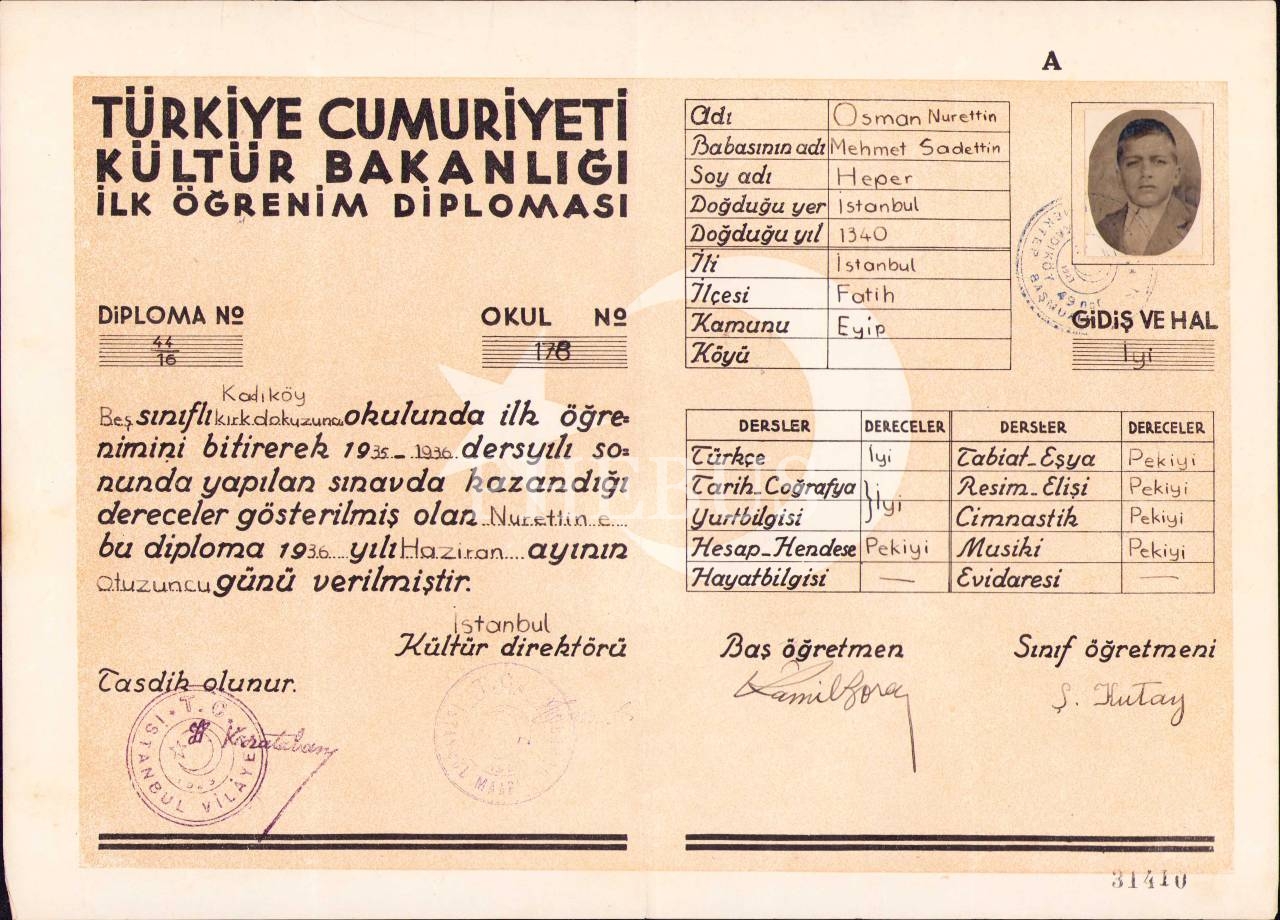 A
TÜRKİYE CUMURİYETİ
KÜLTÜR BAKANLIĞI
İLK ÖĞRENİM DİPLOMASI
DİPLOMA № OKUL №
44/16 178
Kadıköy
Beş sınıflı kırk dokuzuncu okulunda ilk öğre=
nimini bitirerek 1935-1936 dersyılı so=
nunda yapılan sınavda kazandığı
dereceler gösterilmiş olan Nurettin e
bu diploma 1936 yılı Haziran ayının
otuzuncu günü verilmiştir.
İstanbul
Kültür direktörü
Tasdik olunur.
T. C.
İSTANBUL VİLÂYE
1923
T. C.
Adı Osman Nurettin
Babasının adı Mehmet Sadettin
Soy adı Heper
Doğduğu yer İstanbul
Doğduğu yıl 1340
İli İstanbul
İlçesi Fatih
Kamunu Eyip
Köyü
KADIKÖY 49
GİDİŞ VE HAL
İyi
DERSLER DERECELER DERSLER DERECELER
Türkçe İyi Tabiat-Eşya Pekiyi
Tarih-Coğrafya İyi Resim-Elişi Pekiyi
Yurtbilgisi Cimnastik Pekiyi
Hesap-Hendese Pekiyi Musiki Pekiyi
Hayatbilgisi — Evidaresi —
PHEBUS
Baş öğretmen Sınıf öğretmeni
Ş. Kutay
31410